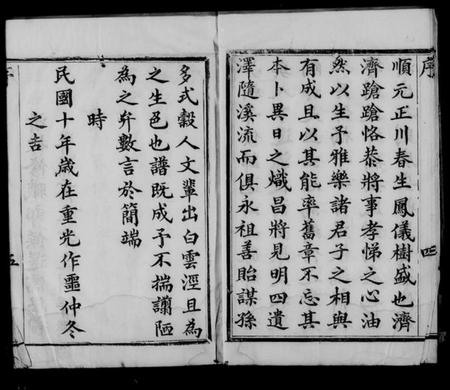 序
順元正川春生鳳儀樹盛也濟
濟蹌蹌恪恭將事孝悌之心油
然以生予雅樂諸君子之相與
有成且以其能率舊章不忘其
本卜異日之熾昌將見明四遺
澤隨溪流而俱永祖善貽謀孫
四
多式穀人文輩出白雲涇且為
之生色也譜既成予不揣譾陋
為之弁數言於簡端
時
民國十年歲在重光作噩仲冬
之吉
五